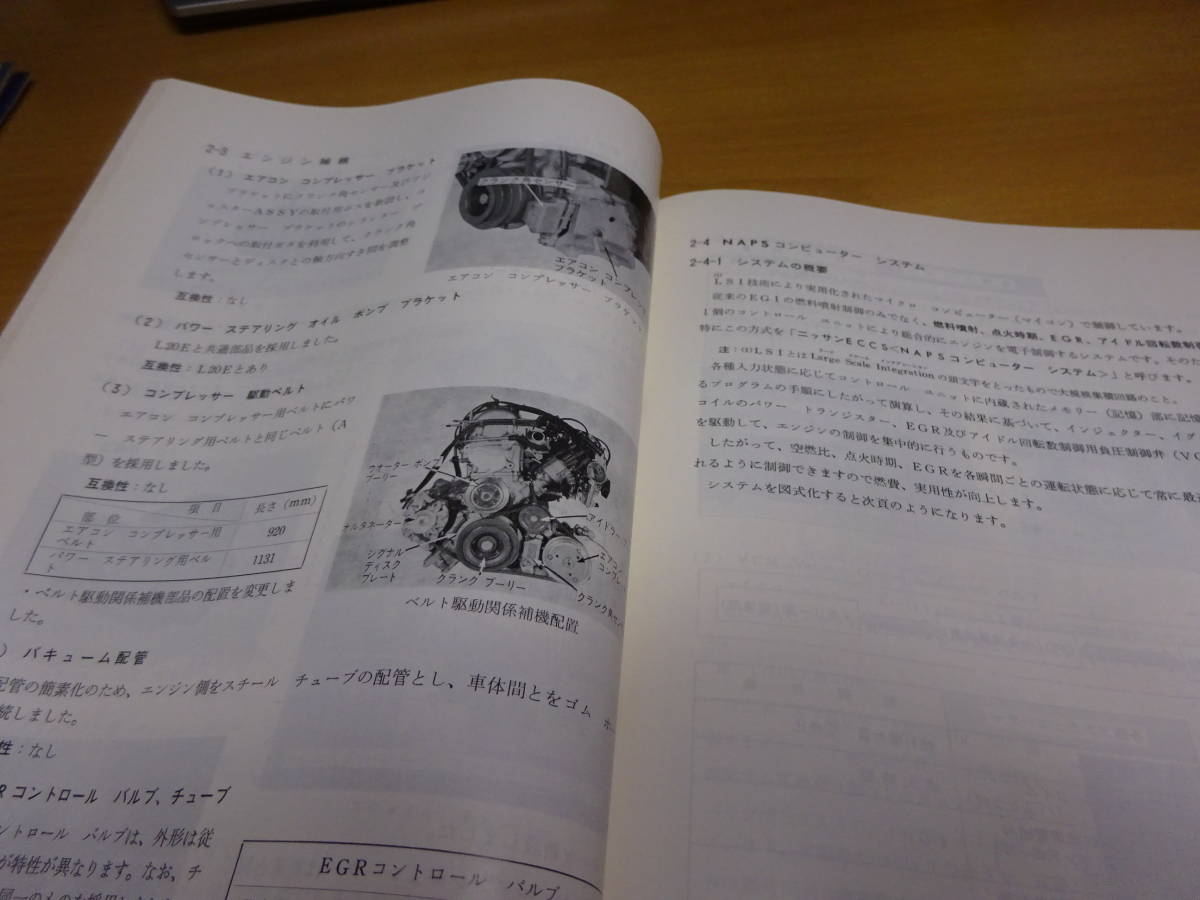 2-3 エンジン補機
(1) エアコン コンプレッサー ブラケット
ブラケットにクランク角センサー及びアジ
ャスターASSYの取付用ボスを新設し、コ
ンプレッサー ブラケットのシリンダー ブ
ロックへの取付ボタを利用して、クランク角
センサーとディスクとの軸方向すき間を調整
します。
互換性：なし
(2) パワー ステアリング オイル ポンプ ブラケット
L20Eと共通部品を採用しました。
互換性：L20Eとあり
(3) コンプレッサー 駆動ベルト
エアコン コンプレッサー用ベルトにパワ
ー ステアリング用ベルトと同じベルト（A
型）を採用しました。
互換性：なし
部 位 項 目 長さ（mm）
エアコン コンプレッサー用
ベルト 920
パワー ステアリング用ベル
ト 1131
・ベルト駆動関係補機部品の配置を変更しま
した。
) バキューム配管
配管の簡素化のため、エンジン側をスチール チューブの配管とし、車体間とをゴム ホー
続しました。
性：なし
R コントロール バルブ、チューブ
ントロール バルブは、外形は従
が特性が異なります。なお、チ
EGRコントロール バルブ
クランク角センサー
エアコン コンプレッサ
ブラケット
エアコン コンプレッサー ブラケット
ウオーター ポンプ
プーリー
ルタネーター
シグナル
ディスク
プレート
クランク プーリー
アイドラー
エアコン
コンプレ
クランク角セン
ベルト駆動関係補機配置
2-4 NAPSコンピューター システム
2-4-1 システムの概要
(注)
LSI技術により実用化されたマイクロ コンピューター（マイコン）で制御しています。
従来のEGIの燃料噴射制御のみでなく、燃料噴射、点火時期、EGR、アイドル回転数制御
1個のコントロール ユニットにより総合的にエンジンを電子制御するシステムです。そのた
特にこの方式を「ニッサンECCS<NAPSコンピューター システム>」と呼びます。
注：(1)LSIとはLarge Scale Integrationの頭文字をとったもので大規模集積回路のこと。
各種入力状態に応じてコントロール ユニットに内蔵されたメモリー（記憶）部に記憶
るプログラムの手順にしたがって演算し、その結果に基づいて、インジェクター、イグ
コイルのパワー トランジスター、EGR及びアイドル回転数制御用負圧制御弁（VC
を駆動して、エンジンの制御を集中的に行うものです。
したがって、空燃比、点火時期、EGRを各瞬間ごとの運転状態に応じて常に最適
れるように制御できますので燃費、実用性が向上します。
システムを図式化すると次頁のようになります。